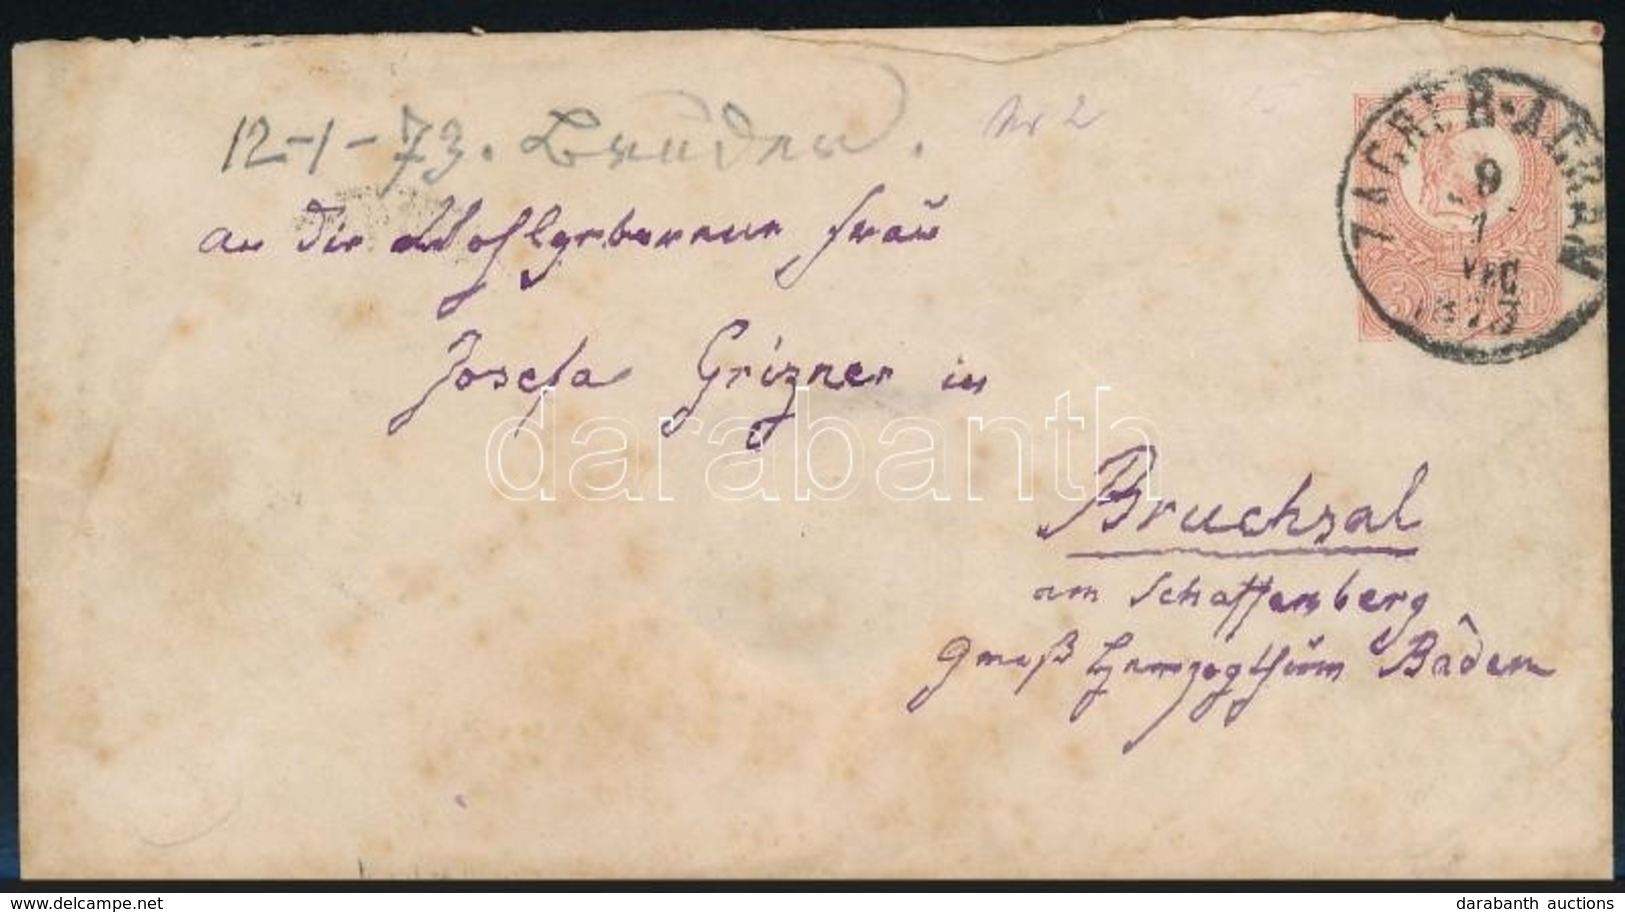 12-1-73. Bruder.
Nr 2
ZAGREB-AGRAM
9
1
1873
An die Wohlgeborene Frau
Josefa Grizner in
darabanth
Bruchsal
am Schaffenberg
Groß Herzogthum Baden
delcampe.net
darabanth auctions